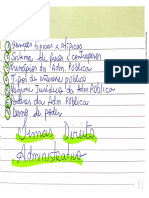 Funções típicas e atípicas
Sistema de freios e contrapesos
Princípios da Adm. Pública
Tipos de interesse público
Regime Jurídico da Adm Pública
Poderes da Adm Pública
de poder
Temas Direito
Administrativo